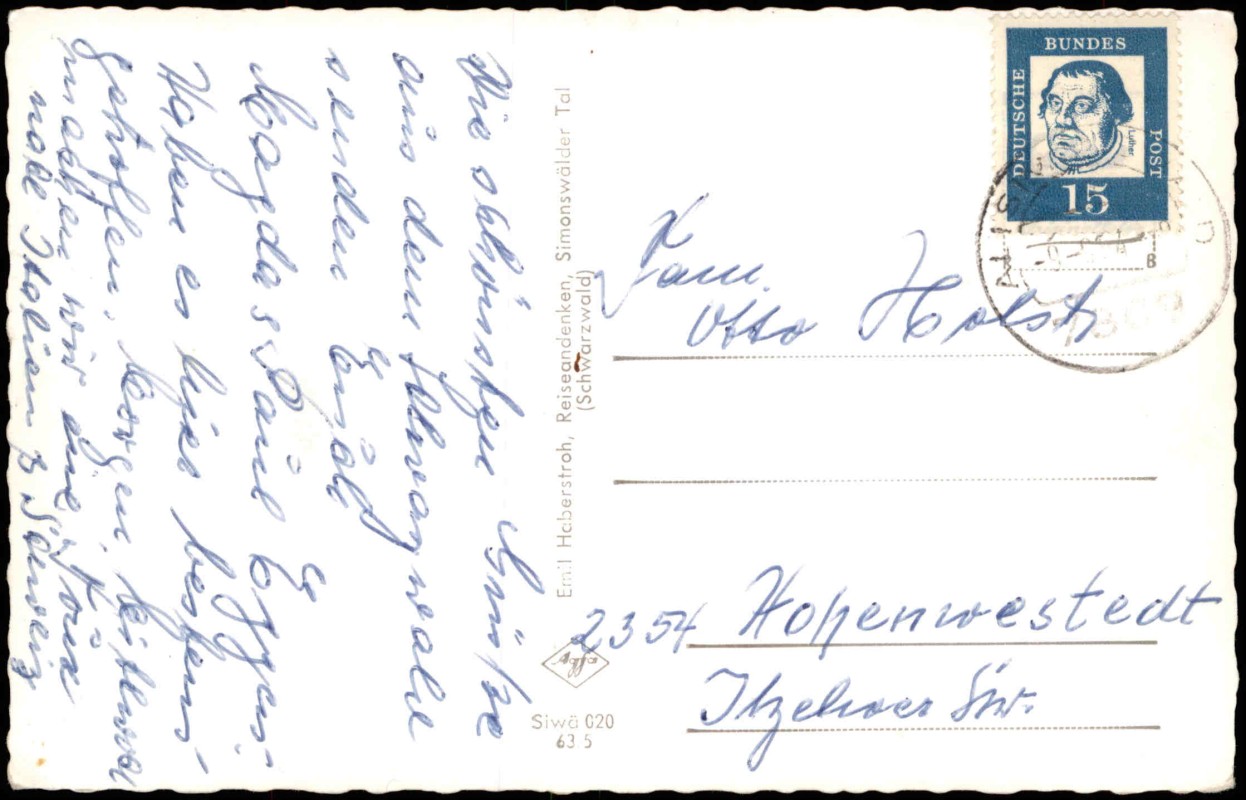 Die schönsten Grüße
aus dem Schwarzwald
senden Euch
Magda & Paul Eggers
Haben es hier bestens
getroffen, Morgen Mittwoch
machen wir eine Tour
nach Italien & Schweiz
Emil Haberstroh, Reiseandenken, Simonswälder Tal
(Schwarzwald)
Agfa
Siwä 020
63 5
DEUTSCHE
BUNDES
POST
Luther
15
B
Fam.
Otto Holst
2354 Hohenwestedt
Itzehoer Str.